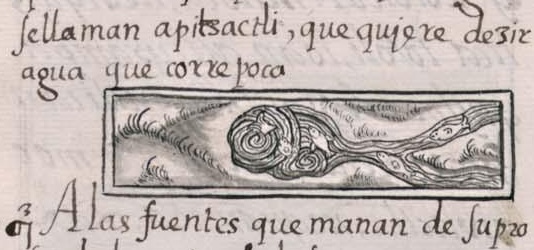 sellaman apitzactli, que quiere dezir
agua que corre poca
¶ A las fuentes que manan de supro